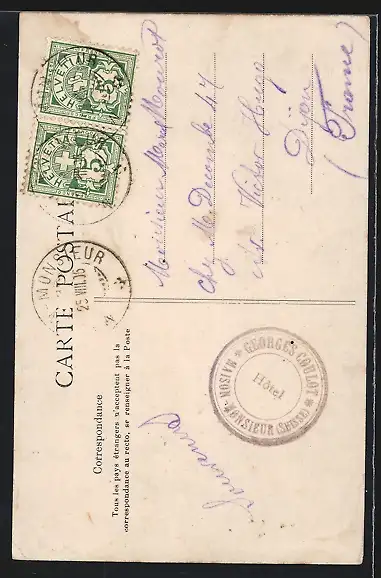 CARTE POSTALE
Correspondance
Tous les pays étrangers n'acceptent pas la
correspondance au recto, se renseigner à la Poste
HELVETIA
5
HELVETIA
5
25.VIII.05
Monsieur Marcel
chez M. Decombe 47
av. Victor Hugo
Dijon
(France)
Souvenir
MAISON * GEORGES COULOT *
Hôtel
MONSIEUR (SUISSE)